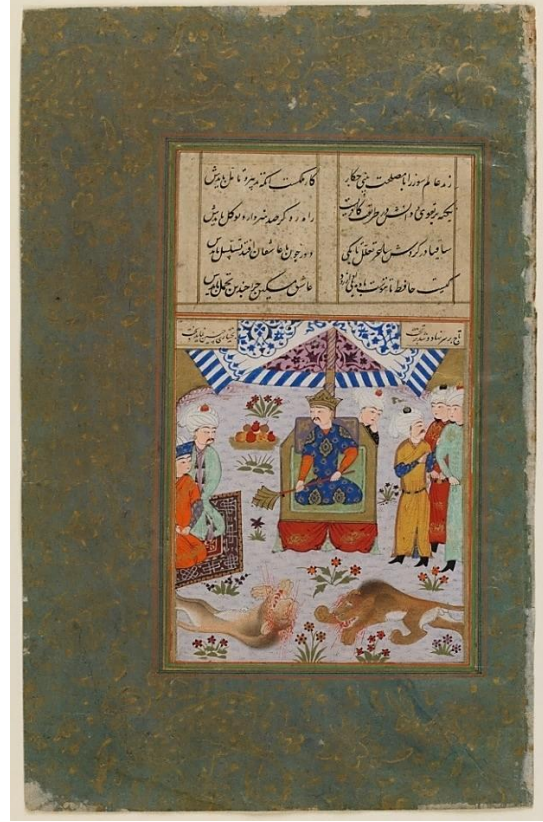 رند عالم سوز را با مصلحت بینی چکار کار ملکست آنکه تدبیر و تامل بایدش
تکیه بر تقوی و دانش در طریقت کافریست راهرو گر صد هنر دارد توکل بایدش
ساقیا در گردش ساغر تعلل تا بکی دور چون با عاشقان افتد تسلسل بایدش
کیست حافظ تا ننوشد باده بی آواز رود عاشق مسکین چرا چندین تجمل بایدش
تاج بر سر نهاد و شد بر تخت بختیاری چنین نماید بخت